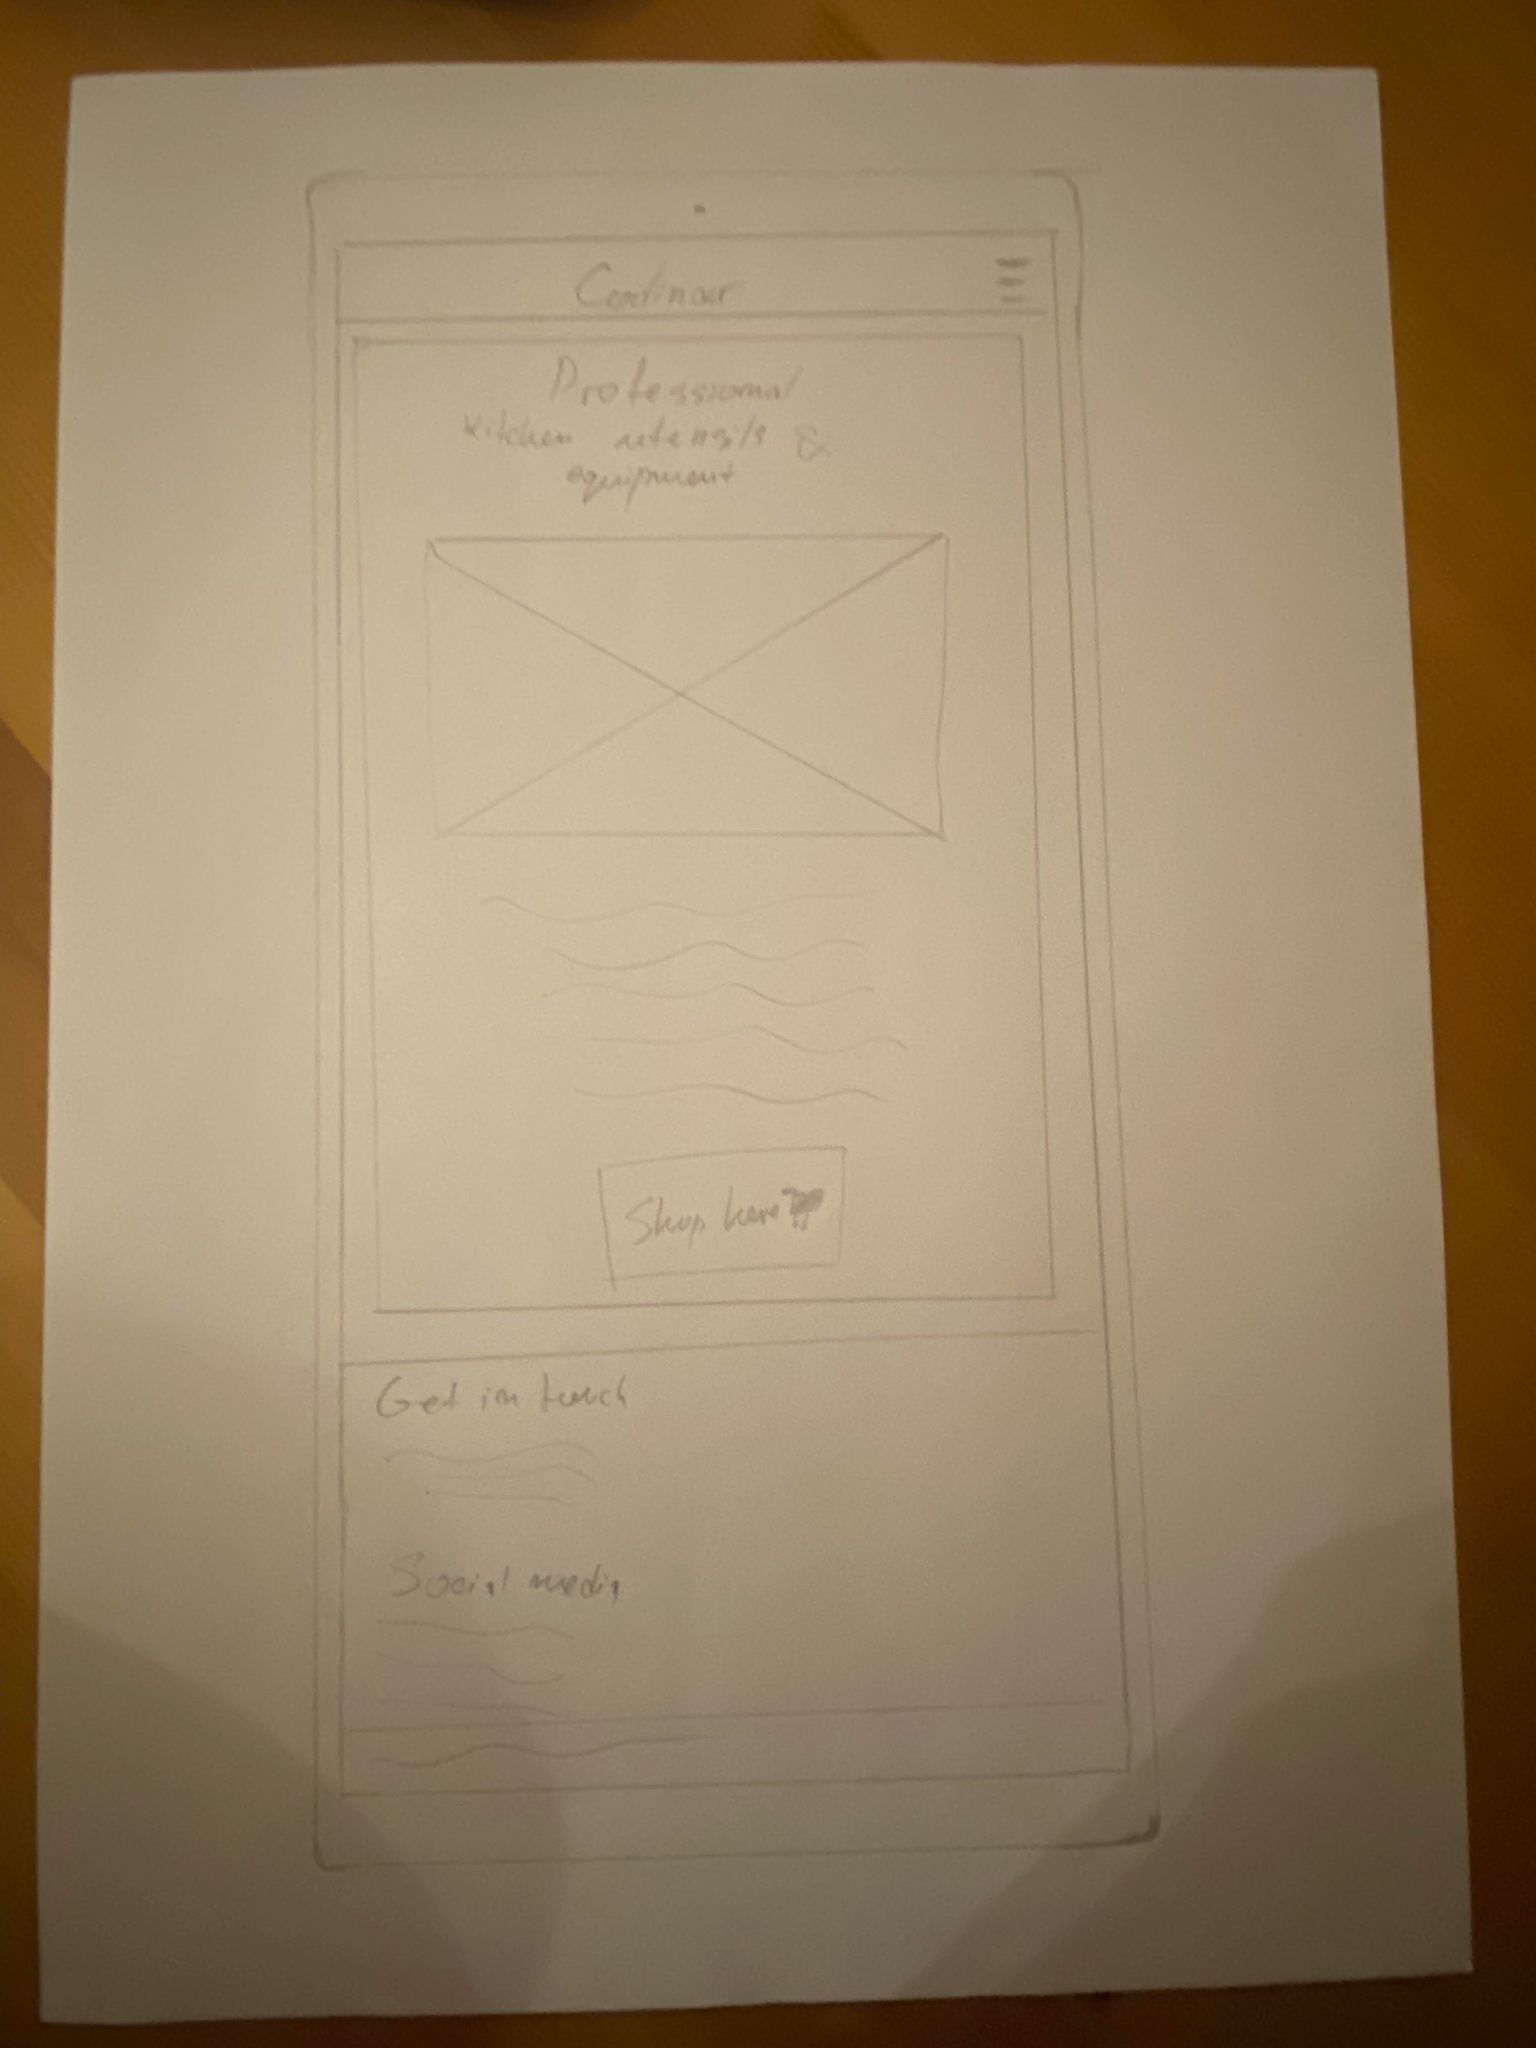 Professional
Kitchen utensils &
equipment
Shop here
Get in touch
Social media